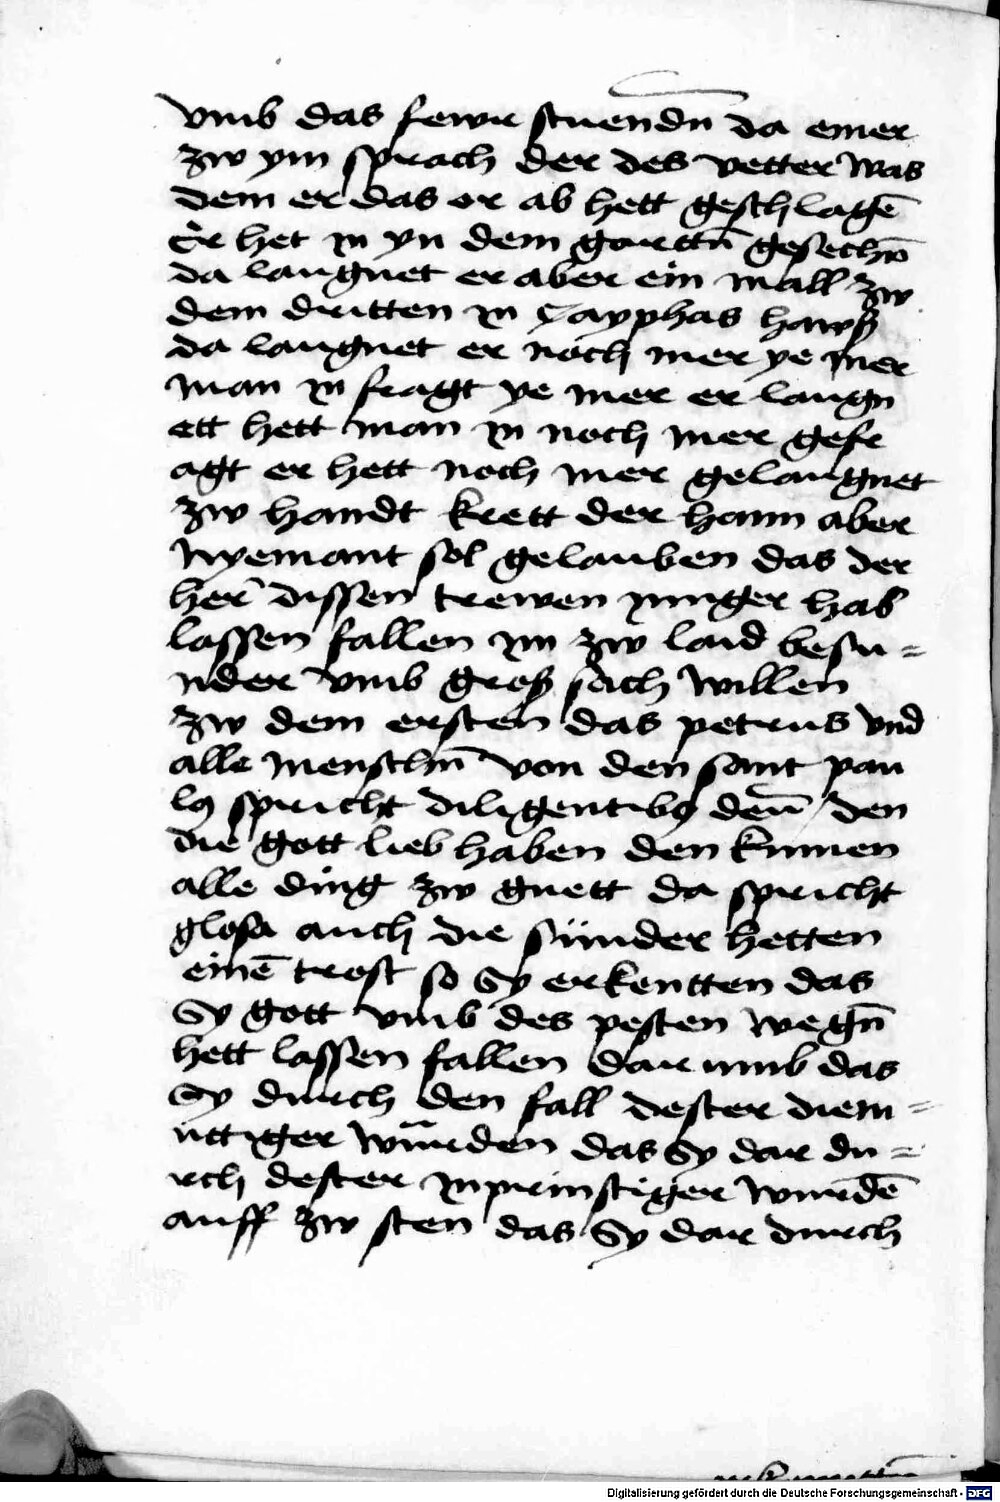 vmb das fewr stuendn̄ da einer
zw ym sprach der des vetter was
dem er das or ab hett geschlagē
Er het in yn dem gartten̄ gesechn̄
da laugnet er aber ein mall zw
dem dritten in Cayphas hawß
da laugnet er noch mer ye mer
man in fragt ye mer er laugn
ett hett man in noch mer gefr
agt er hett noch mer gelaugnet
zw handt krett der hann aber
Nyemant sol gelauben das der
her̄ dissen trewen iunger hab
lassen fallen im zw laid besu=
nder vmb groß sach willen
zw dem ersten das petrus vnd
alle menschn̄ von den sant pau
lꝰ spricht diligentibꝰ deū / den
die gott lieb haben den kumen
alle ding zw guett da spricht
glosa auch die sünder hetten
einē trost so sy erkentten das
Sy gott vmb des pesten wegn̄
hett lassen fallen dar umb das
Sy durch den fall dester diem=
uttiger wūrden das Sy dar du=
rch dester inprinstiger wurdē
auff zw sten das Sy dar durch
Digitalisierung gefördert durch die Deutsche Forschungsgemeinschaft - DFG